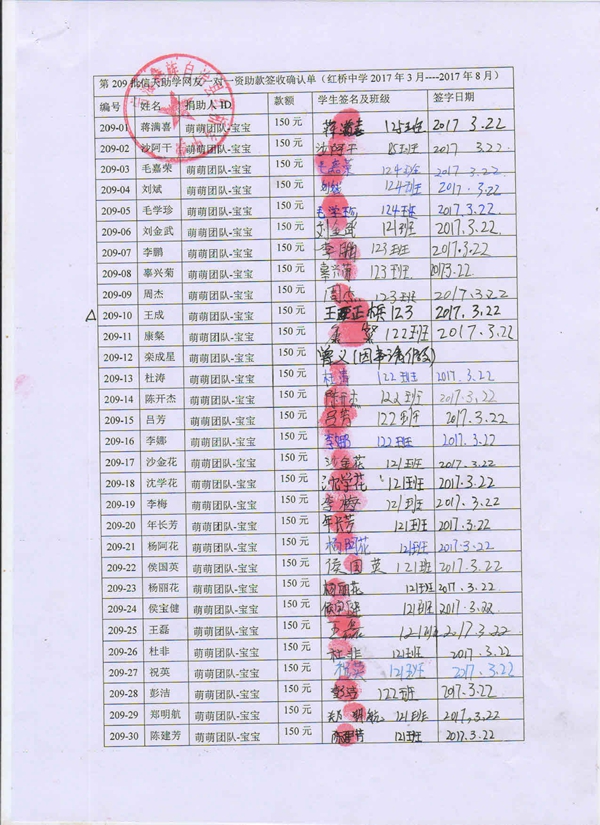 第 209 批信天助学网友一对一资助款签收确认单（红桥中学 2017 年 3 月----2017 年 8 月）
编号 姓名 捐助人 ID 款额 学生签名及班级 签字日期
209-01 蒋满喜 萌萌团队-宝宝 150 元 蒋满喜 125班 2017 3.22
209-02 沙阿干 萌萌团队-宝宝 150 元 沙阿干 班 2017 3.22.
209-03 毛嘉荣 萌萌团队-宝宝 150 元 毛嘉荣 124班 2017.3.22
209-04 刘斌 萌萌团队-宝宝 150 元 刘斌 124班 2017.3.22
209-05 毛学珍 萌萌团队-宝宝 150 元 毛学珍 124班 2017.3.22
209-06 刘金武 萌萌团队-宝宝 150 元 刘金武 121班 2017.3.22
209-07 李鹏 萌萌团队-宝宝 150 元 李鹏 123班 2017.3.22
209-08 辜兴菊 萌萌团队-宝宝 150 元 辜兴菊 123班 2017.3.22
209-09 周杰 萌萌团队-宝宝 150 元 周杰 123班 2017.3.22
△ 209-10 王成 萌萌团队-宝宝 150 元 王 正栎 123
209-11 康粲 萌萌团队-宝宝 150 元 122班 2017.3.22
209-12 栾成星 萌萌团队-宝宝 150 元 曾义(因事请假)
209-13 杜涛 萌萌团队-宝宝 150 元 杜涛 122班 2017.3.22
209-14 陈开杰 萌萌团队-宝宝 150 元 陈开杰 122班 2017.3.22
209-15 吕芳 萌萌团队-宝宝 150 元 吕芳 122班 2017.3.22
209-16 李娜 萌萌团队-宝宝 150 元 李娜 122班 2017.3.22
209-17 沙金花 萌萌团队-宝宝 150 元 沙金花 121班 2017.3.22
209-18 沈学花 萌萌团队-宝宝 150 元 沈学花 121班 2017.3.22
209-19 李梅 萌萌团队-宝宝 150 元 李梅 121班 2017.3.22
209-20 年长芳 萌萌团队-宝宝 150 元 年长芳 121班 2017.3.22
209-21 杨阿花 萌萌团队-宝宝 150 元 杨阿花 121班 2017.3.22
209-22 侯国英 萌萌团队-宝宝 150 元 侯国英 121班 2017.3.22
209-23 杨丽花 萌萌团队-宝宝 150 元 杨丽花 121班 2017.3.22
209-24 侯宝健 萌萌团队-宝宝 150 元 侯宝健 121班 2017.3.22
209-25 王磊 萌萌团队-宝宝 150 元 王磊 121班 2017.3.22
209-26 杜非 萌萌团队-宝宝 150 元 杜非 121班 2017.3.22
209-27 祝英 萌萌团队-宝宝 150 元 祝英 121班 2017.3.22
209-28 彭洁 萌萌团队-宝宝 150 元 彭洁 122班 2017.3.22
209-29 郑明航 萌萌团队-宝宝 150 元 郑明航 121班 2017.3.22
209-30 陈建芳 萌萌团队-宝宝 150 元 陈建芳 121班 2017.3.22